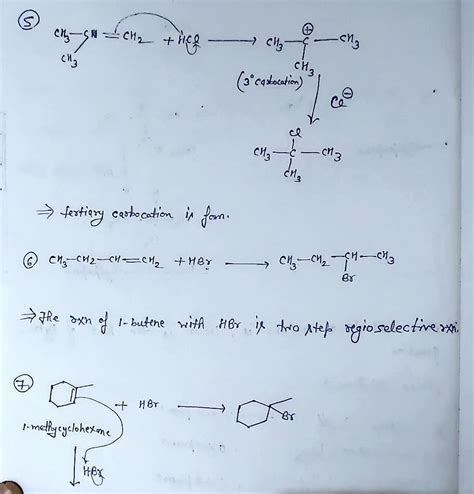 5
CH3–C=CH2 + HCl ⟶ CH3–C⊕–CH3
CH3
CH3
(3° carbocation)
Cl⊖
Cl
CH3–C–CH3
CH3
⇒ tertiary carbocation is form.
6 CH3–CH2–CH=CH2 + HBr ⟶ CH3–CH2–CH–CH3
Br
⇒ The rxn of 1-butene with HBr is two step regioselective rxn.
7
+ HBr ⟶ Br
1-methycyclohexene
HBr